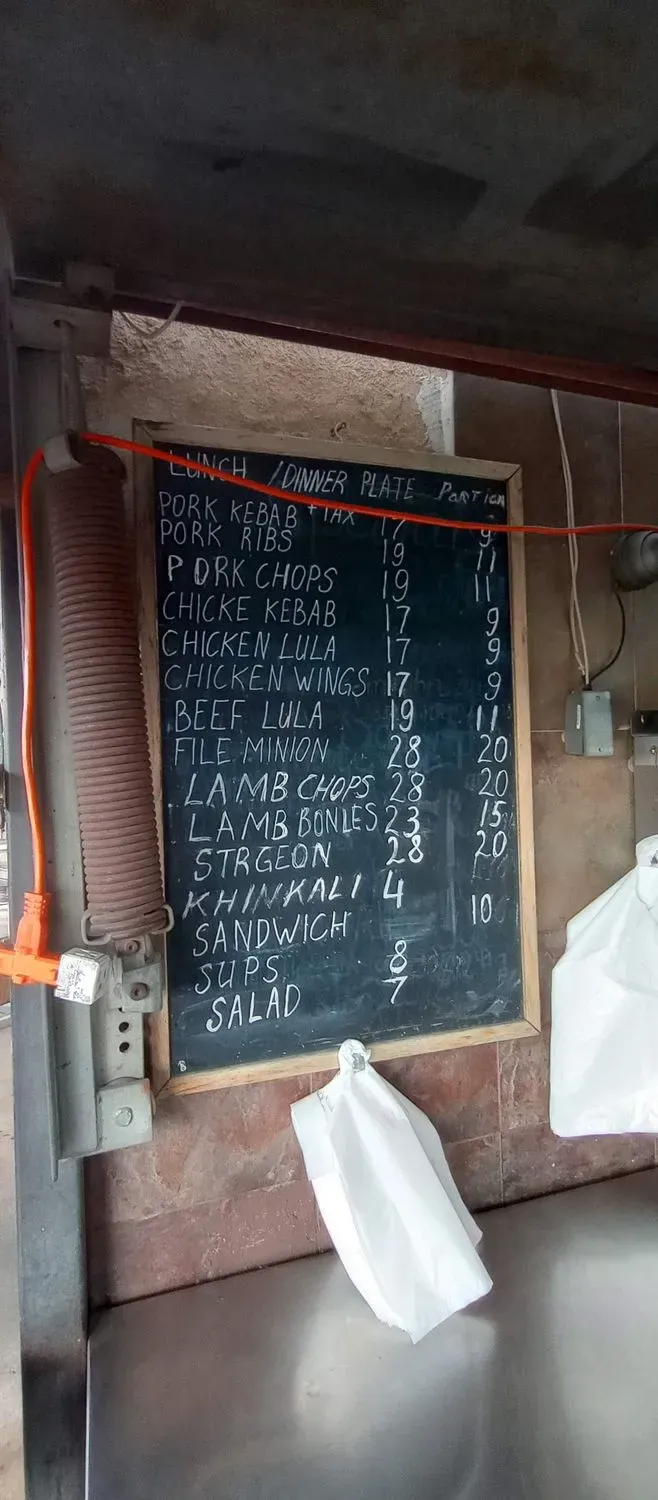 LUNCH / DINNER PLATE PORTION
PORK KEBAB + TAX 17 9
PORK RIBS 19 11
PORK CHOPS 19 11
CHICKE KEBAB 17 9
CHICKEN LULA 17 9
CHICKEN WINGS 17 9
BEEF LULA 19 11
FILE MINION 28 20
LAMB CHOPS 28 20
LAMB BONLES 23 15
STRGEON 28 20
KHINKALI 4
SANDWICH 10
SUPS 8
SALAD 7